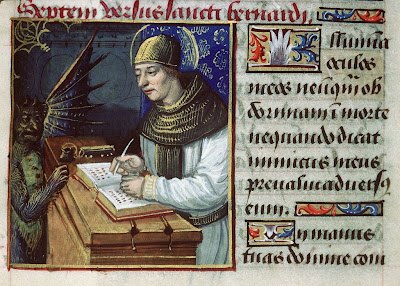 Septem versus sancti bernardi
Illumina
oculos
meos ne unq̄m ob
dormiam ī morte
nequando dicat
inimicus meus
preualui aduersꝰ
eum
In manus
tuas domine com